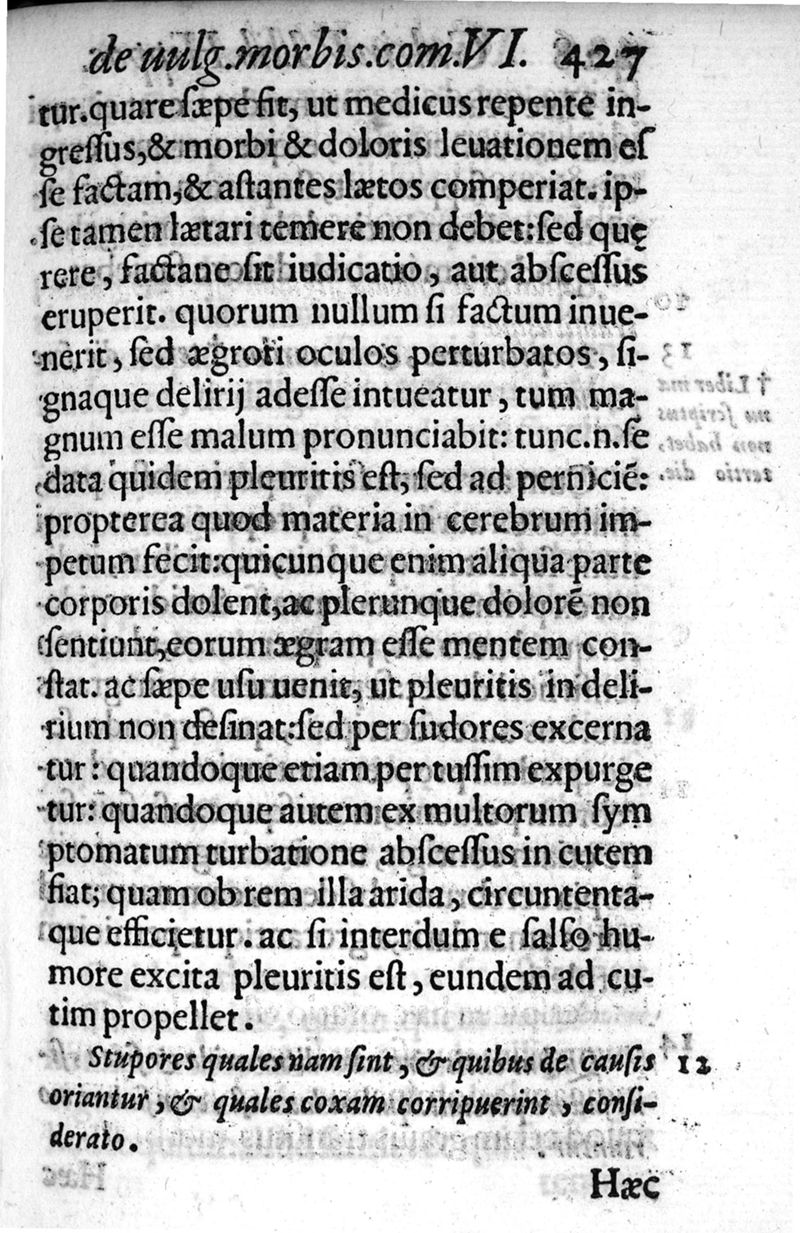 de uulg.morbis.com.VI. 427
tur.quare ſæpe fit, ut medicus repente in-
greſſus,& morbi & doloris leuationem eſ
ſe factam,& aſtantes lætos comperiat. ip-
ſe tamen lætari temere non debet:ſed quę
rere, factane ſit iudicatio, aut abſceſſus
eruperit. quorum nullum ſi factum inue-
nerit, ſed ægroti oculos perturbatos, ſi-
gnaque delirij adeſſe intueatur, tum ma-
gnum eſſe malum pronunciabit: tunc.n.ſe
data quidem pleuritis eſt, ſed ad perniciẽ:
propterea quod materia in cerebrum im-
petum fecit:quicunque enim aliqua parte
corporis dolent,ac plerunque dolorẽ non
ſentiunt,eorum ægram eſſe mentem con-
ſtat. ac ſæpe uſu uenit, ut pleuritis in deli-
rium non deſinat:ſed per ſudores excerna
tur: quandoque etiam per tuſſim expurge
tur: quandoque autem ex multorum ſym
ptomatum turbatione abſceſſus in cutem
fiat; quam ob rem illa arida, circuntenta-
que efficietur. ac ſi interdum e ſalſo hu-
more excita pleuritis eſt, eundem ad cu-
tim propellet.
Stupores quales nam ſint, & quibus de cauſis 12
oriantur, & quales coxam corripuerint, conſi-
derato.
Hæc